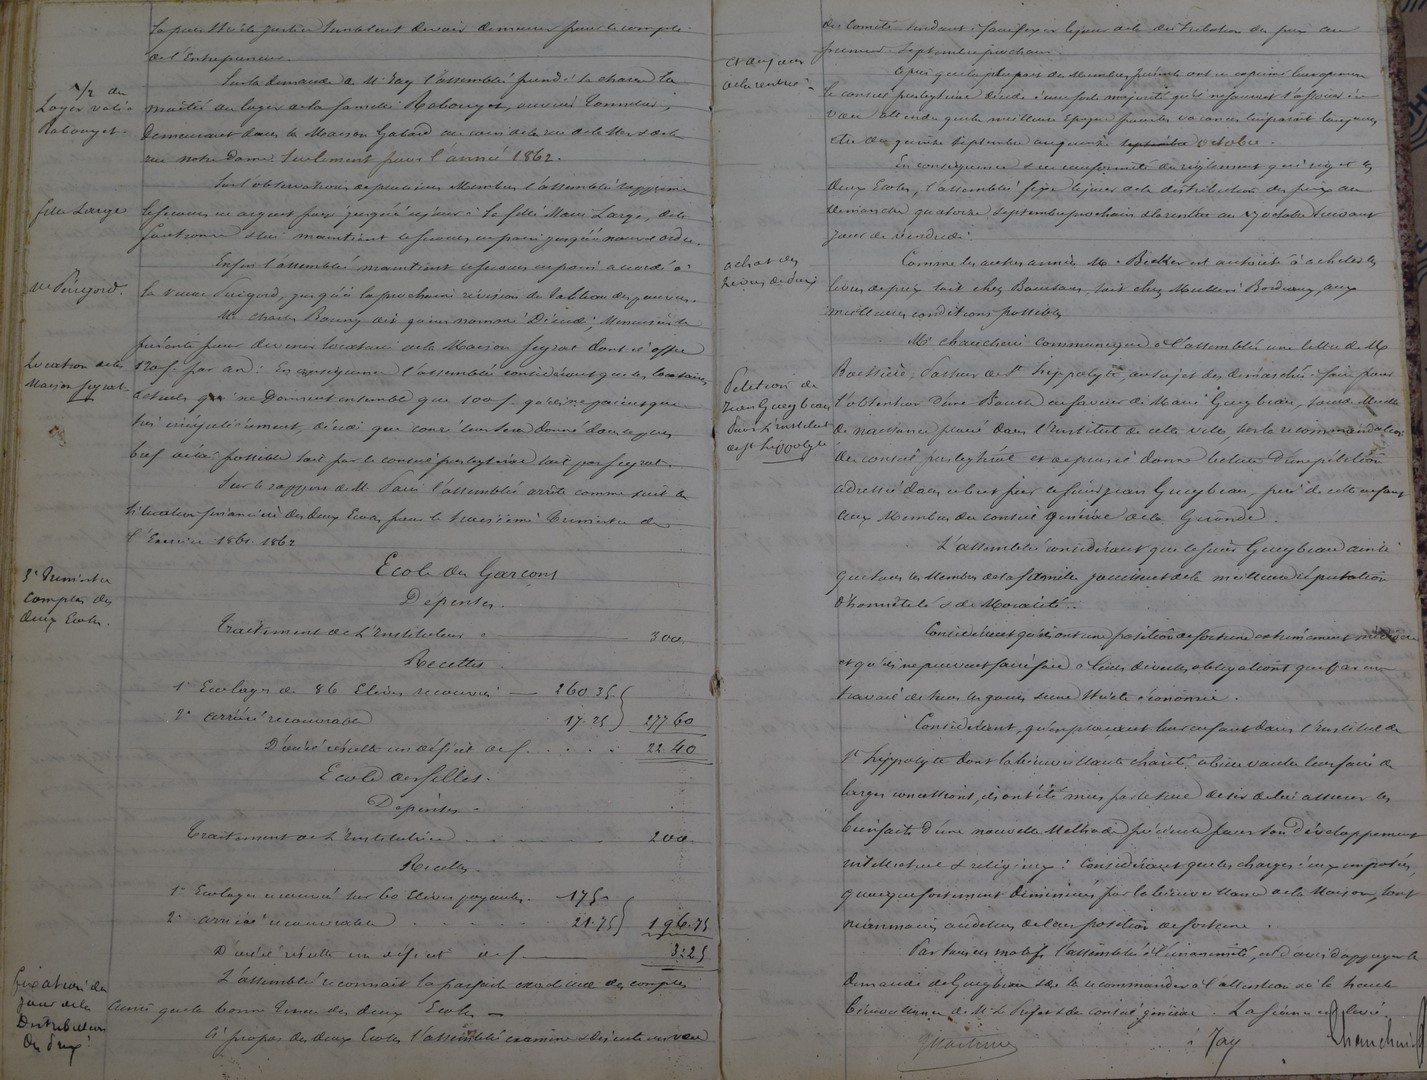 la plus stricte justice semblent devoir demeurer pour le compte
de l'Entrepreneur.
1/2 du
Loyer
Rabouyet.
Sur la demande de Mr Jay l'assemblée prend à sa charge la
moitié du loyer de la famille Rabouyet, ouvrier Tonnelier,
Demeurant dans la Maison Gabard au coin de la rue de la
rue notre Dame seulement pour l'année 1862.
fille Large
Sur l'observation de plusieurs Membres l'assemblée supprime
le secours en argent jusqu'à à la fille Marie Large,
et maintient le secours en pain jusqu'à nouvel ordre.
Ve Périgord.
Enfin l'assemblée maintient le secours en pain accordé à
la veuve Périgord, jusqu'à la prochaine révision du tableau des pauvres.
Location de la
Maison feyrat
Mr Charles Bonny dit qu'un nommé Menuisier se
présente pour devenir locataire de la Maison feyrat dont il offre
120 f. par an. En conséquence l'assemblée considérant que les locataires
actuels ne donnent ensemble que 100 f. qu'ils ne paient que
très irrégulièrement, décide que congé leur sera donné dans le plus
bref délai possible soit par le conseil presbytéral soit par feyrat.
3e Trimestre
comptes des
deux Ecoles.
Sur le rapport de Mr l'assemblée arrête comme suit la
situation financière des deux Ecoles pour le troisième Trimestre de
l'Exercice 1861-1862
Ecole des Garçons
Dépenses.
Traitement de l'Instituteur 300
Recettes
1° Ecolages de 86 Elèves recouvrés 260.35
2° arriéré recouvrable 17.25 277 60
D'où il résulte un déficit de f. 22 40
Ecole des filles.
Dépenses.
Traitement de l'Institutrice 200
Recettes.
1° Ecolages recouvrés sur 60 Elèves payantes 175
2° arriéré recouvrable 21.75 196.75
D'où il résulte un déficit de f. 3.25
L'assemblée reconnaît la parfaite exactitude des comptes
ainsi que la bonne tenue des deux Ecoles
fixation du
jour de la
Distribution
des prix
A propos des deux Ecoles l'assemblée examine et discute un vœu
du Comité tendant à faire fixer le jour de la distribution des prix au
premier Septembre prochain.
et du jour
de la rentrée
Après que la plupart des Membres présents ont exprimé leur opinion
le conseil presbytéral décide à une forte majorité qu'il ne saurait s'associer à ce
vœu attendu que la meilleure Epoque pour les vacances lui paraît toujours
être du quinze septembre au quinze septembre octobre.
En conséquence et en conformité du règlement qui régit les
deux Ecoles, l'assemblée fixe le jour de la distribution des prix au
Dimanche quatorze Septembre prochain et la rentrée au 17 octobre suivant
jour de Vendredi.
achat des
Livres de prix
Comme les autres années Mr Becker est autorisé à acheter les
livres de prix soit chez soit chez Bordeaux, aux
meilleures conditions possibles
Pétition de
Jean Gueybeau
pour l'Institut
de St hippolyte
Mr chauchard communique à l'assemblée une lettre de Mr
Pasteur de St hippolyte, au sujet des démarches à faire pour
l'obtention d'une Bourse en faveur de Marie Gueybeau, sourde Muette
de naissance placée dans l'Institut de cette ville, sur la recommandation
du conseil presbytéral et de plus il donne lecture d'une pétition
adressée dans ce but par le sieur jean Gueybeau, père de cette enfant
aux Membres du conseil général de la Gironde.
L'assemblée considérant que le sieur Gueybeau ainsi
que tous les Membres de sa famille jouissent de la meilleure réputation
d'honnêteté & de Moralité.
Considérant qu'ils ont une position de fortune extrêmement médiocre
et qu'ils ne peuvent faire face à leurs diverses obligations que par un
travail de tous les jours et une stricte économie.
Considérant, qu'en plaçant leur enfant dans l'Institut de
St hippolyte dont la bienveillante charité a bien voulu leur faire de
larges concessions, ils ont été mus par le seul désir de lui assurer les
bienfaits d'une nouvelle Méthode précieuse pour son développement
intellectuel & religieux: Considérant que les charges à eux imposées,
quoique fortement diminuées par la bienveillance de la Maison, sont
néanmoins au dessus de leur position de fortune.
Par tous ces motifs l'assemblée à l'unanimité, est d'avis d'appuyer la
demande de Gueybeau et de la recommander à l'attention et à la haute
bienveillance de Mr le Préfet & du conseil général. La séance est levée.
Jay